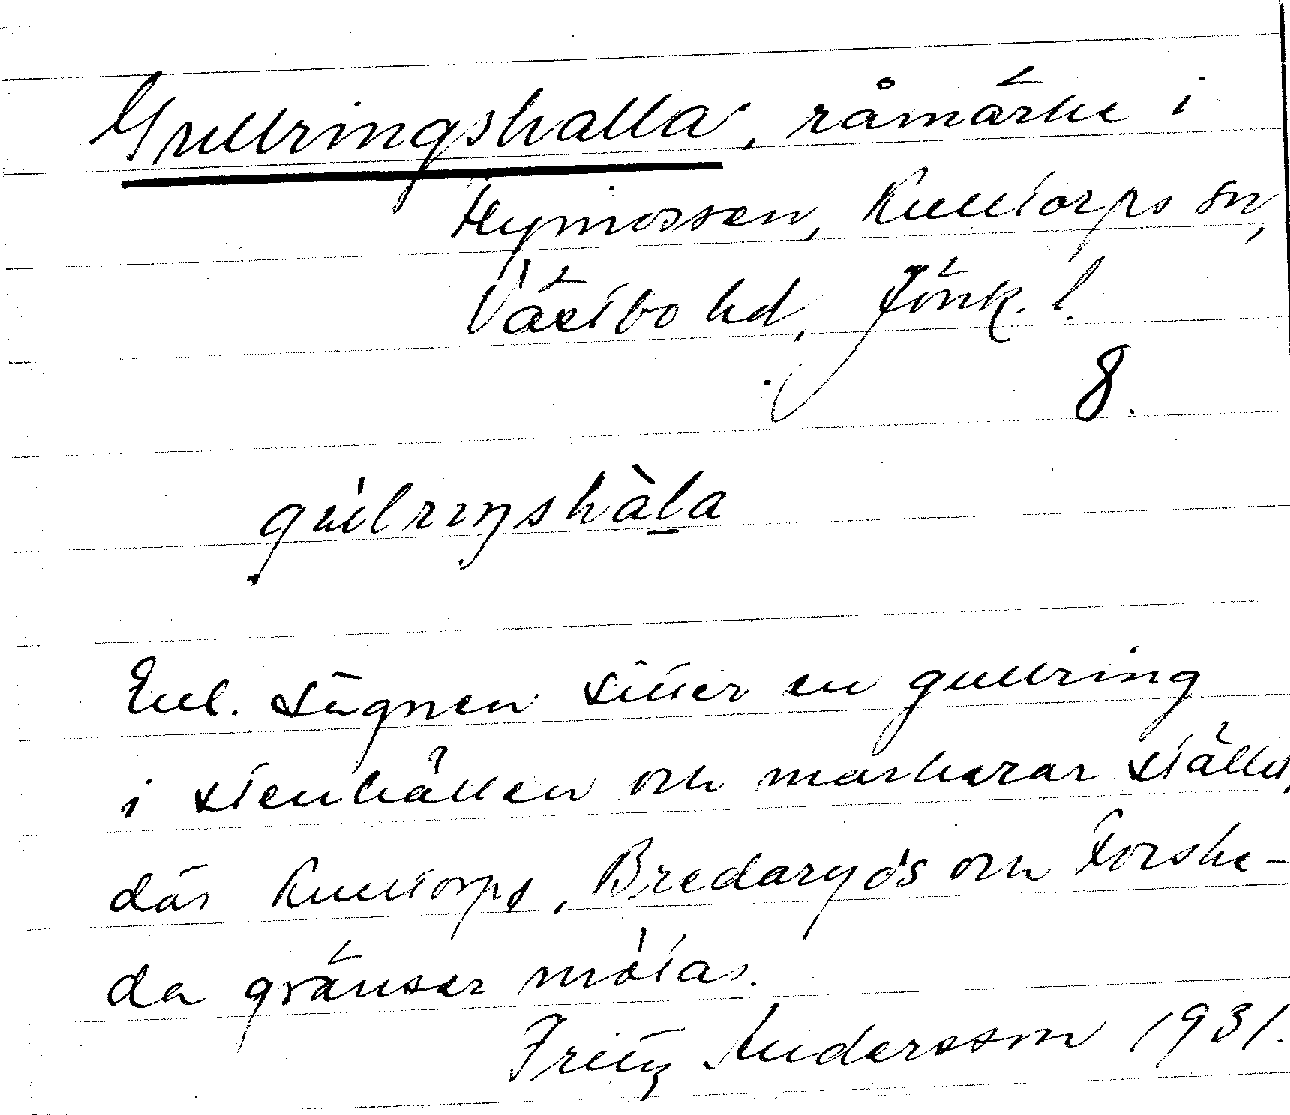 Gullringshalla, råmärke i
Flymossen, Kulltorps sn,
Västbo hd, Jönk. l.
8.
Enl. sägnen sitter en gullring
i stenhällen och markerar stället,
där Kulltorps, Bredaryds och Forshe-
da gränser mötas.
Fritz Andersson 1931.